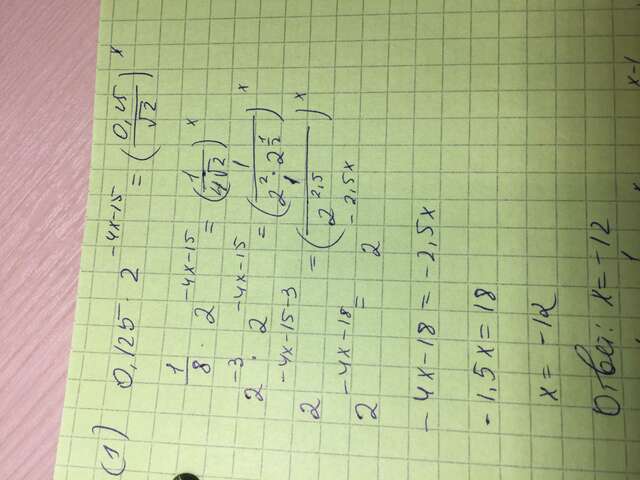 (1) 0,125 · 2^{-4x-15} = (0,25/√2)^x
1/8 · 2^{-4x-15} = (1/4√2)^x
2^{-3} · 2^{-4x-15} = (1/2^2 · 2^{1/2})^x
2^{-4x-15-3} = (1/2^{2,5})^x
2^{-4x-18} = 2^{-2,5x}
-4x-18 = -2,5x
-1,5x = 18
x = -12
Ответ: x = -12